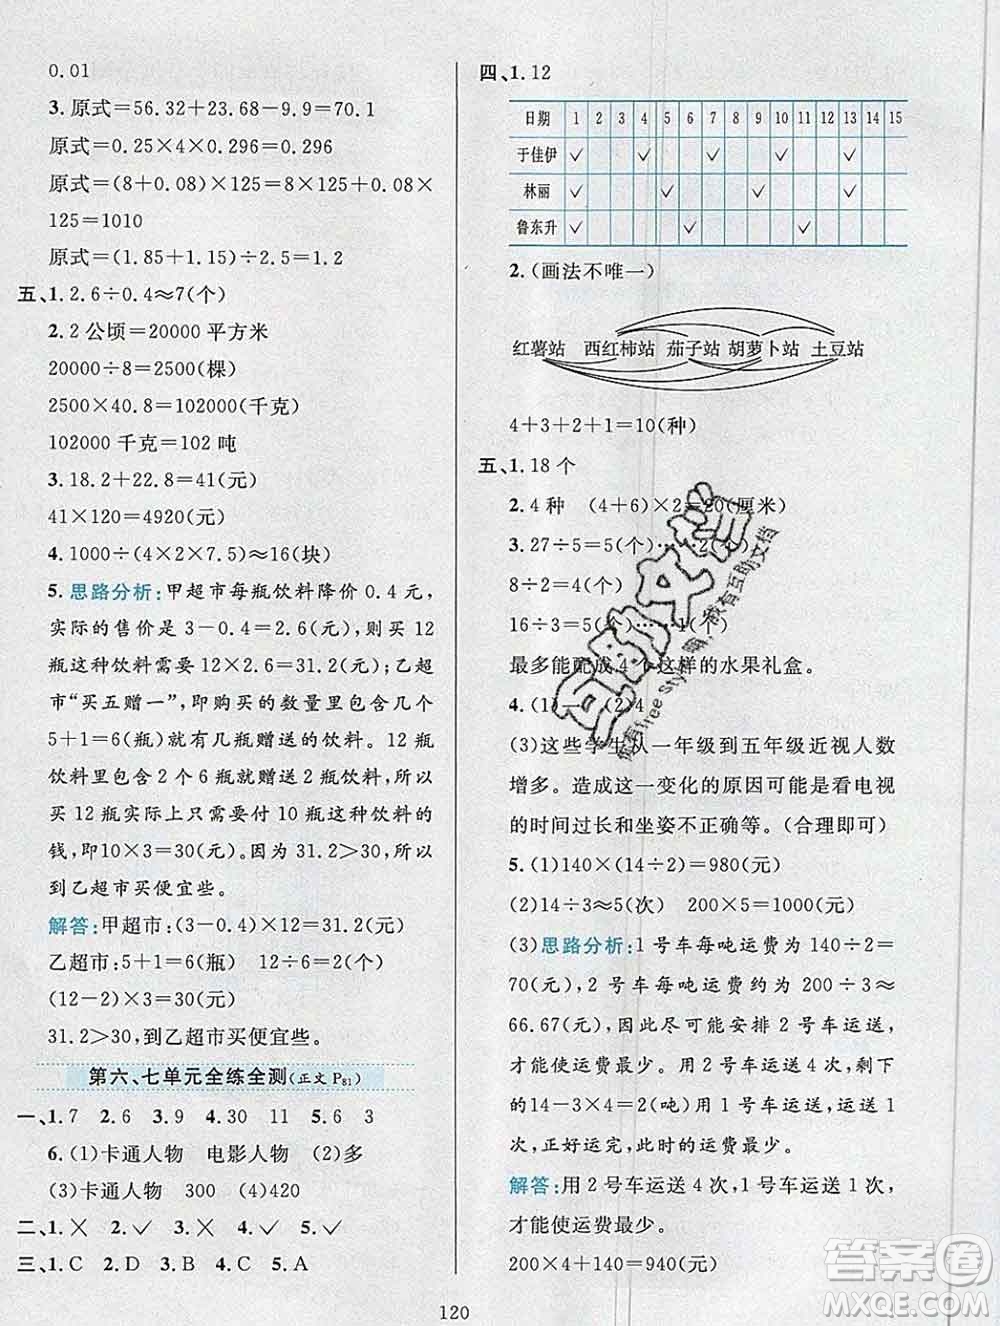 0.01
3.原式=56.32+23.68-9.9=70.1
原式=0.25×4×0.296=0.296
原式=(8+0.08)×125=8×125+0.08×
125=1010
原式=(1.85+1.15)÷2.5=1.2
五、1.2.6÷0.4≈7(个)
2.2公顷=20000平方米
20000÷8=2500(棵)
2500×40.8=102000(千克)
102000千克=102吨
3.18.2+22.8=41(元)
41×120=4920(元)
4.1000÷(4×2×7.5)≈16(块)
5.思路分析:甲超市每瓶饮料降价0.4元,
实际的售价是3-0.4=2.6(元),则买12
瓶这种饮料需要12×2.6=31.2(元);乙超
市“买五赠一”,即购买的数量里包含几个
5+1=6(瓶),就有几瓶赠送的饮料。12瓶
饮料中包含2个6瓶就赠送2瓶饮料,所以
买12瓶实际上只需要付10瓶这种饮料的
钱,即10×3=30(元)。因为31.2>30,所以
到乙超市买便宜些。
解答:甲超市:(3-0.4)×12=31.2(元)
乙超市:5+1=6(瓶) 12÷6=2(瓶)
(12-2)×3=30(元)
31.2>30,到乙超市买便宜些。
第六、七单元全练全测(正文P81)
一、1.7 2.6 3.9 4.30 11 5.6 3
6.(1)卡通人物 电影人物 (2)多
(3)卡通人物 300 (4)420
二、1.× 2.✓ 3.× 4.✓ 5.✓
三、1.C 2.D 3.B 4.C 5.A
四、1.12
日期 1 2 3 4 5 6 7 8 9 10 11 12 13 14 15
于佳伊 ✓ ✓ ✓ ✓ ✓
林丽 ✓ ✓ ✓ ✓
鲁东升 ✓ ✓ ✓
2.(画法不唯一)
红薯站 西红柿站 茄子站 胡萝卜站 土豆站
4+3+2+1=10(种)
五、1.18个
2.4种 (4+6)×2=20(厘米)
3.27÷5=5(个)……2(个)
8÷2=4(个)
16÷3=5(个)……1(个)
最多能配成4个这样的水果礼盒。
4.(1)一 (2)4
(3)这些学生从一年级到五年级近视人数
增多。造成这一变化的原因可能是看电视
的时间过长和坐姿不正确等。(合理即可)
5.(1)140×(14÷2)=980(元)
(2)14÷3≈5(次) 200×5=1000(元)
(3)思路分析:1号车每吨运费为140÷2=
70(元),2号车每吨运费约为200÷3≈
66.67(元),尽可能安排2号车运送,
才能使运费最少。用2号车运送4次,
剩14-3×4=2(吨)用1号车运送1
次,正好运完,此时的运费最少。
解答:用2号车运送4次,1号车运送1次,
才能使运费最少。
200×4+140=940(元)
120
答案圈
MXQE.COM